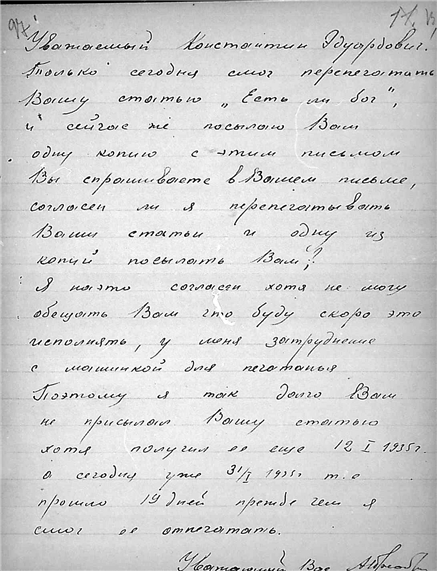 97
Уважаемый Константин Эдуардович.
Только сегодня смог перепечатать
Вашу статью „Есть ли бог",
и сейчас же посылаю Вам
одну копию с этим письмом
Вы спрашиваете в Вашем письме,
согласен ли я перепечатывать
Ваши статьи и одну из
копий посылать Вам?
Я на это согласен хотя не могу
обещать Вам что буду скоро это
исполнять, у меня затруднение
с машинкой для печатанья
Поэтому я так долго Вам
не присылал Вашу статью
хотя получил ее еще 12 I 1935г.
а сегодня уже 31/I 1935г т.е
прошло 19 дней прежде чем я
смог ее отпечатать.
Уважающий Вас